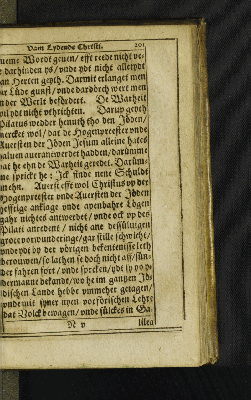 Vam Lydende Christi. 201
neme Wordt geuen / efft rede nicht ve-
darhinden ys / vnde ydt nicht alletydt
an Herten geyth. Darmit erlanget men
er Lüde gunst / vnde dardorch wert men
n der Werlt befördert. De Warheit
wil ydt nicht vthrichten. Darup geyth
Pilatus wedder henuth tho den Jöden /
mercket wol / dat de Hogenpreester vnde
Auersten der Jöden Jesum alleine hates
haluen auerantwerdet hadden / darümme
hat he ehn de Warheit geredet. Darüm-
me spricke he : Ick finde nene Schuldt
an ehm. Auerst efft wol Christus vp der
Hogenpreester vnde Auersten der Jöden
hefftige anklage vnde apenbahre Lögen
gahr nichtes antwerdet / vnde ock vp des
Pilati anredent / nicht ane dessüluigen
grote vorwunderinge / gar stille schwicht /
vnde ydt by der vörigen bekentenisse leth
berouwen / so lathen je doch nicht aff / sün-
der fahren fort / vnde spreken / ydt sy yo je-
dermanne bekande / wo he im gantzen Jö-
dischen Lande hebbe vmmeher getagen /
vnde mit syner nyen vorförischen Lehre
dat Volck bewagen / vnde sülckes in Ga-
N v lilea